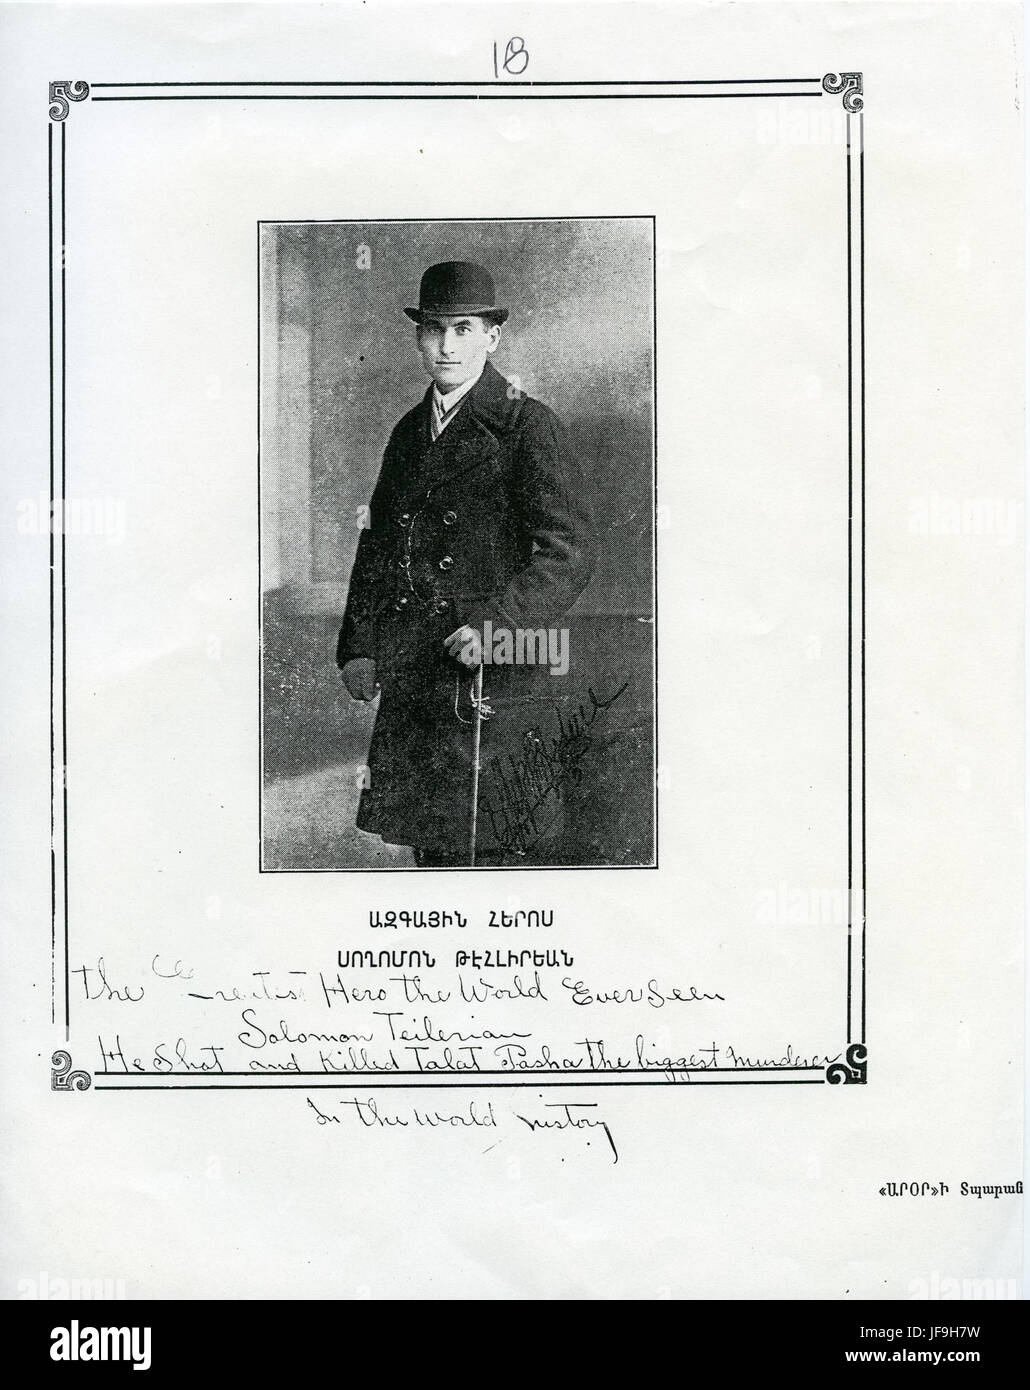 18
ԱԶԳԱՅԻՆ ՀԵՐՈՍ
ՍՈՂՈՄՈՆ ԹԷՀԼԻՐԵԱՆ
the Hero the World Ever Seen
Solomon Teilerian
He Shot and Killed Talat Pasha the biggest Murderer
In the World history
«ԱՐՕՐ»Ի Տպարան
alamy
Image ID: JF9H7W
www.alamy.com